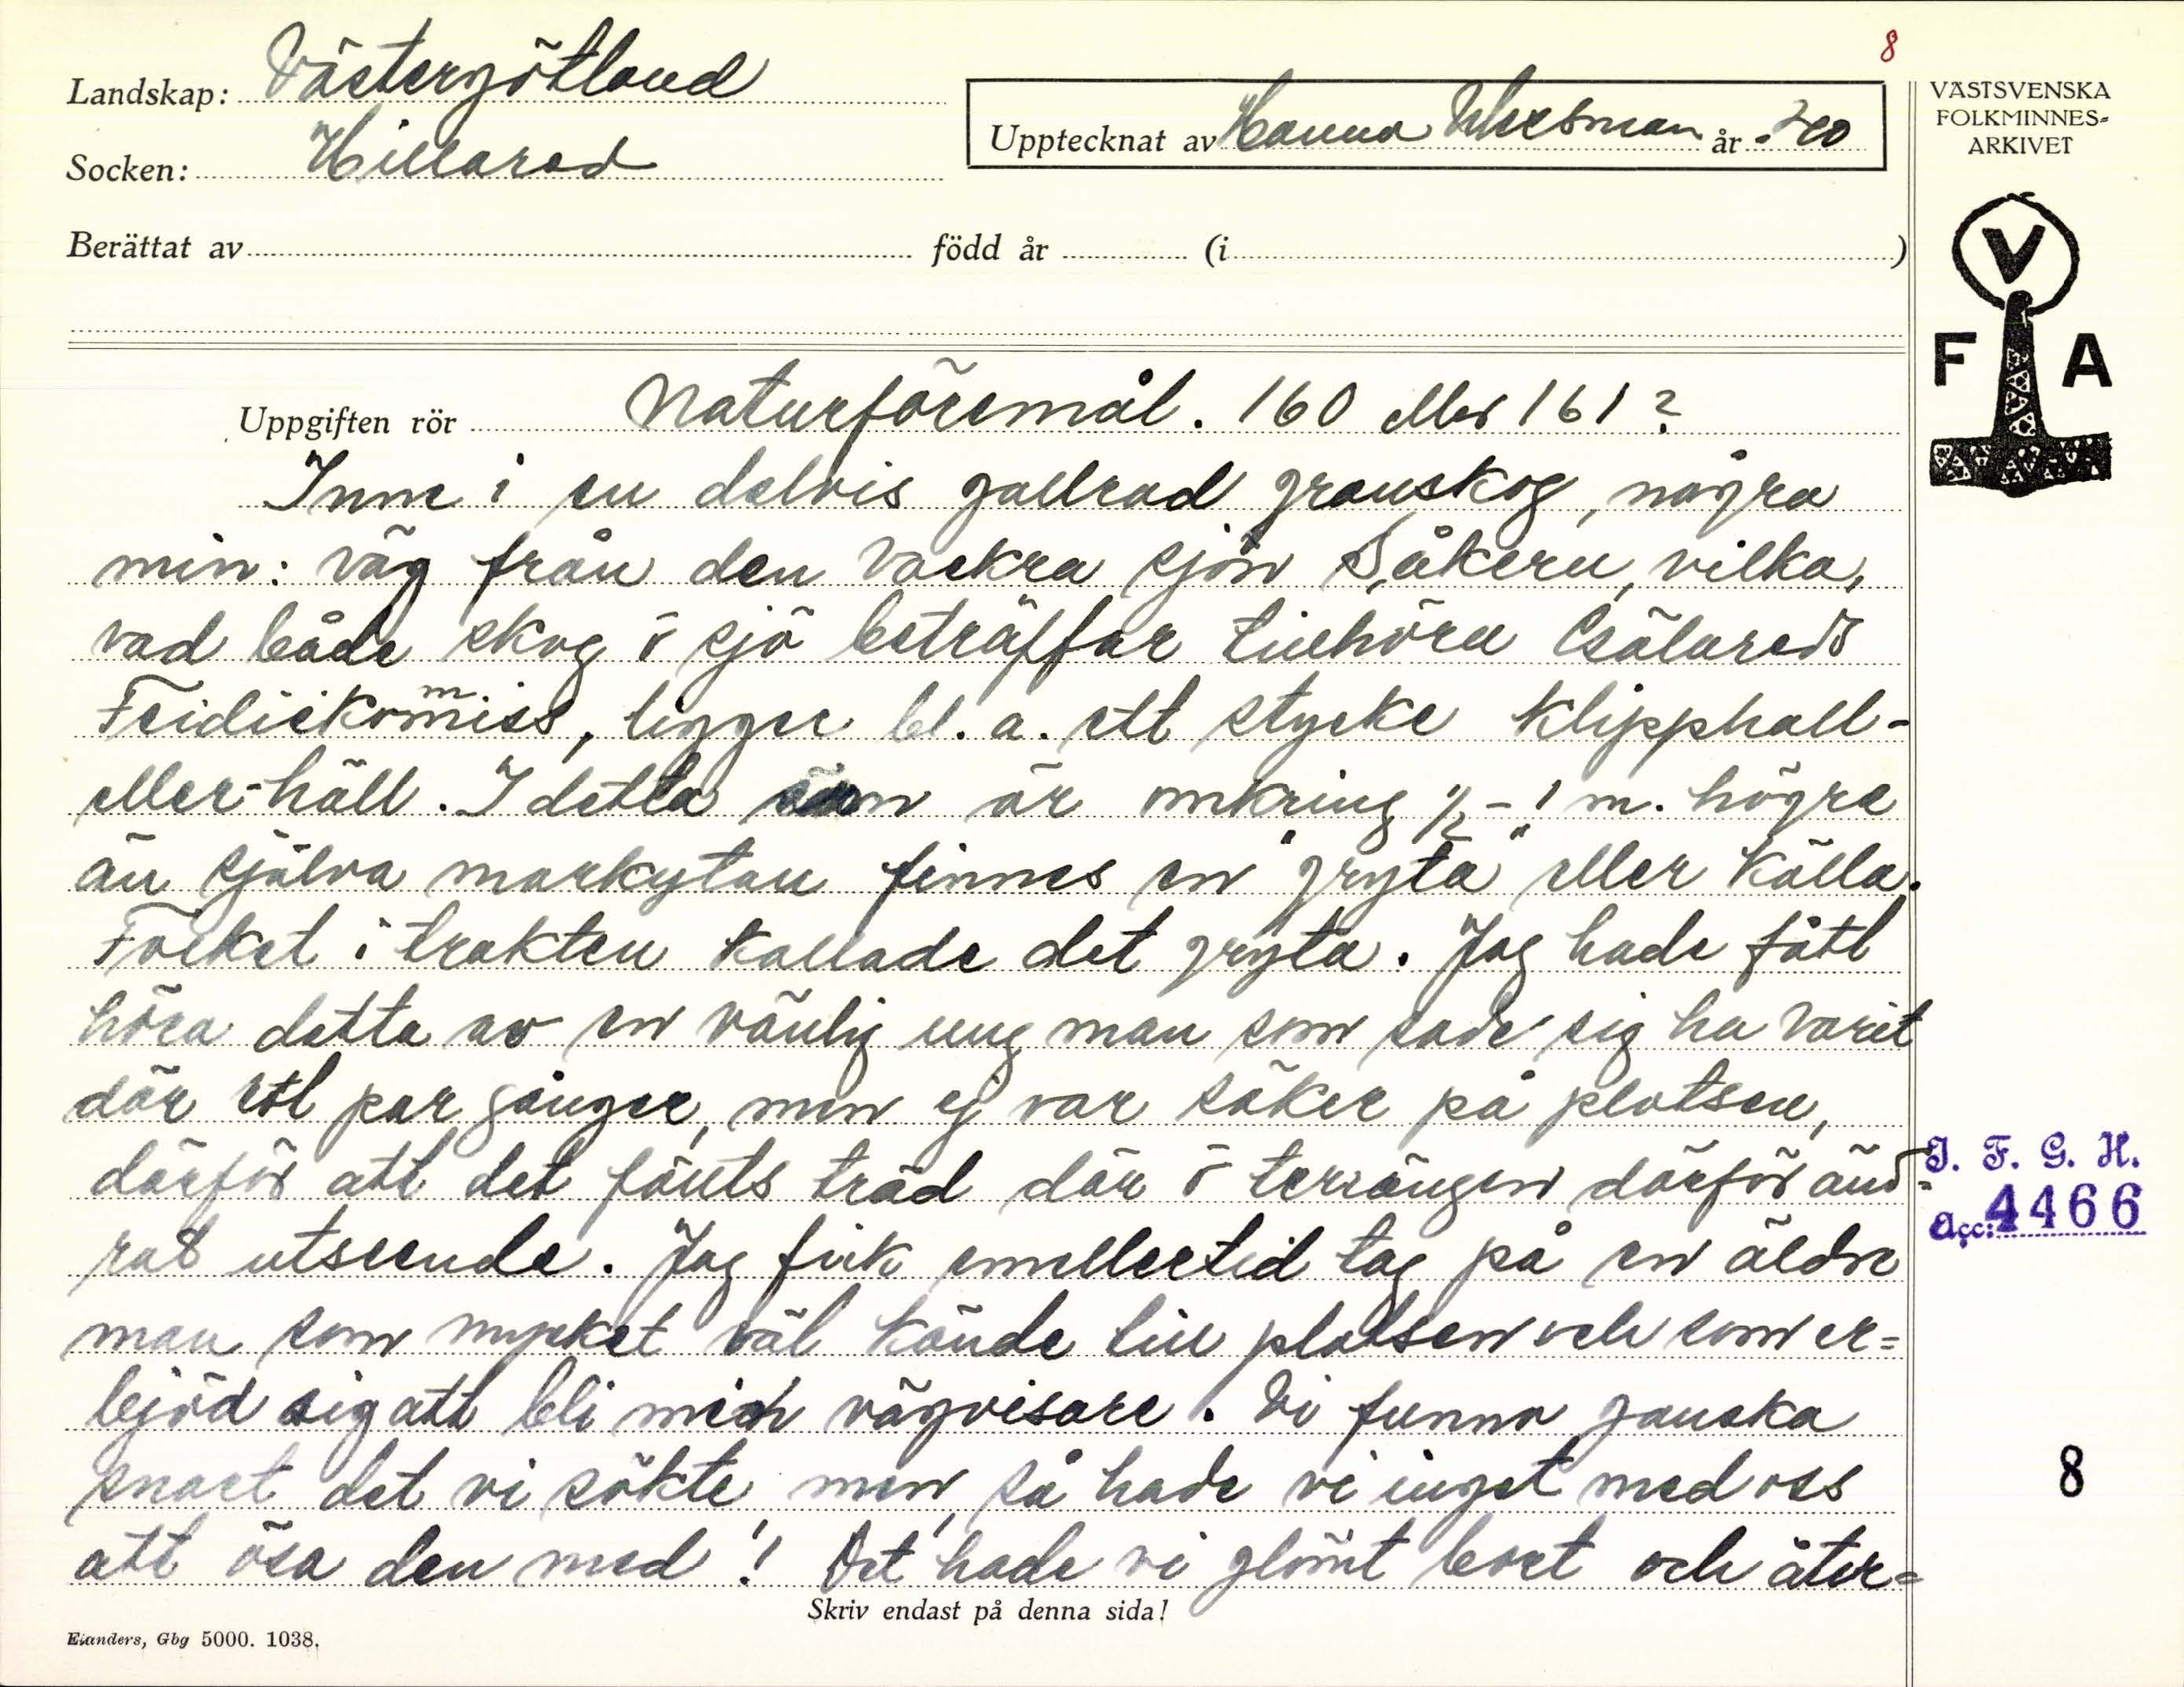 8
Landskap: Västergötland
Socken: Hillared
Upptecknat av Hanna år 40
VÄSTSVENSKA
FOLKMINNES-
ARKIVET
V
F A
Berättat av född år (i )
Uppgiften rör Naturföremål. 160 eller 161?
Inne i en delvis gallrad granskog, några
min: väg från den vackra sjön Såken, vilka,
vad både skog o sjö beträffar tillhöra Gsälareds
Feidiekommiss, ligger bl. a. ett stycke klipphall-
eller-häll. I detta som är omkring ½-1 m. högre
än själva markytan finnes en "gryta" eller källa.
Folket i trakten kallade det gryta. Jag hade fått
höra detta av en vänlig ung man som sade sig ha varit
där ett par gånger, men ej var säker på platsen,
därför att det fällts träd där o terrängen därför änd-
rat utseende. Jag fick emellertid tag på en äldre
man som mycket väl kände till platsen och som er=
bjöd sig att bli min vägvisare. Vi funno ganska
snart det vi sökte, men, så hade vi inget med oss
att ösa den med! Det hade vi glömt bort och åter=
J. F. G. H.
Acc: 4466
8
Skriv endast på denna sida!
Elanders, Gbg 5000. 1038.